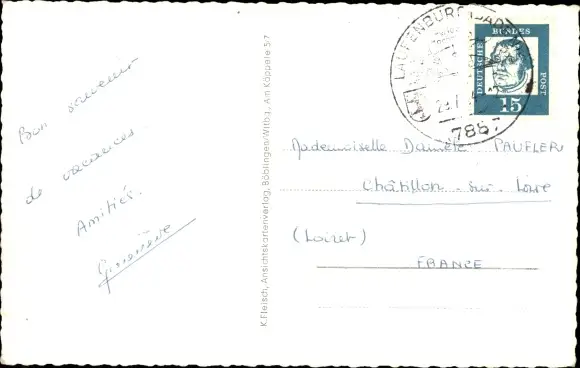 Bon souvenir
de vacances
Amitiés.
Geneviève
K. Fleisch, Ansichtskartenverlag, Böblingen/Wttbg., Am Käppele 5/7
LAUFENBURG (BAD
7887
DEUTSCHE BUNDES POST
15
Mademoiselle Danièle PAUFLER
Châtillon-sur-Loire
(Loiret)
FRANCE